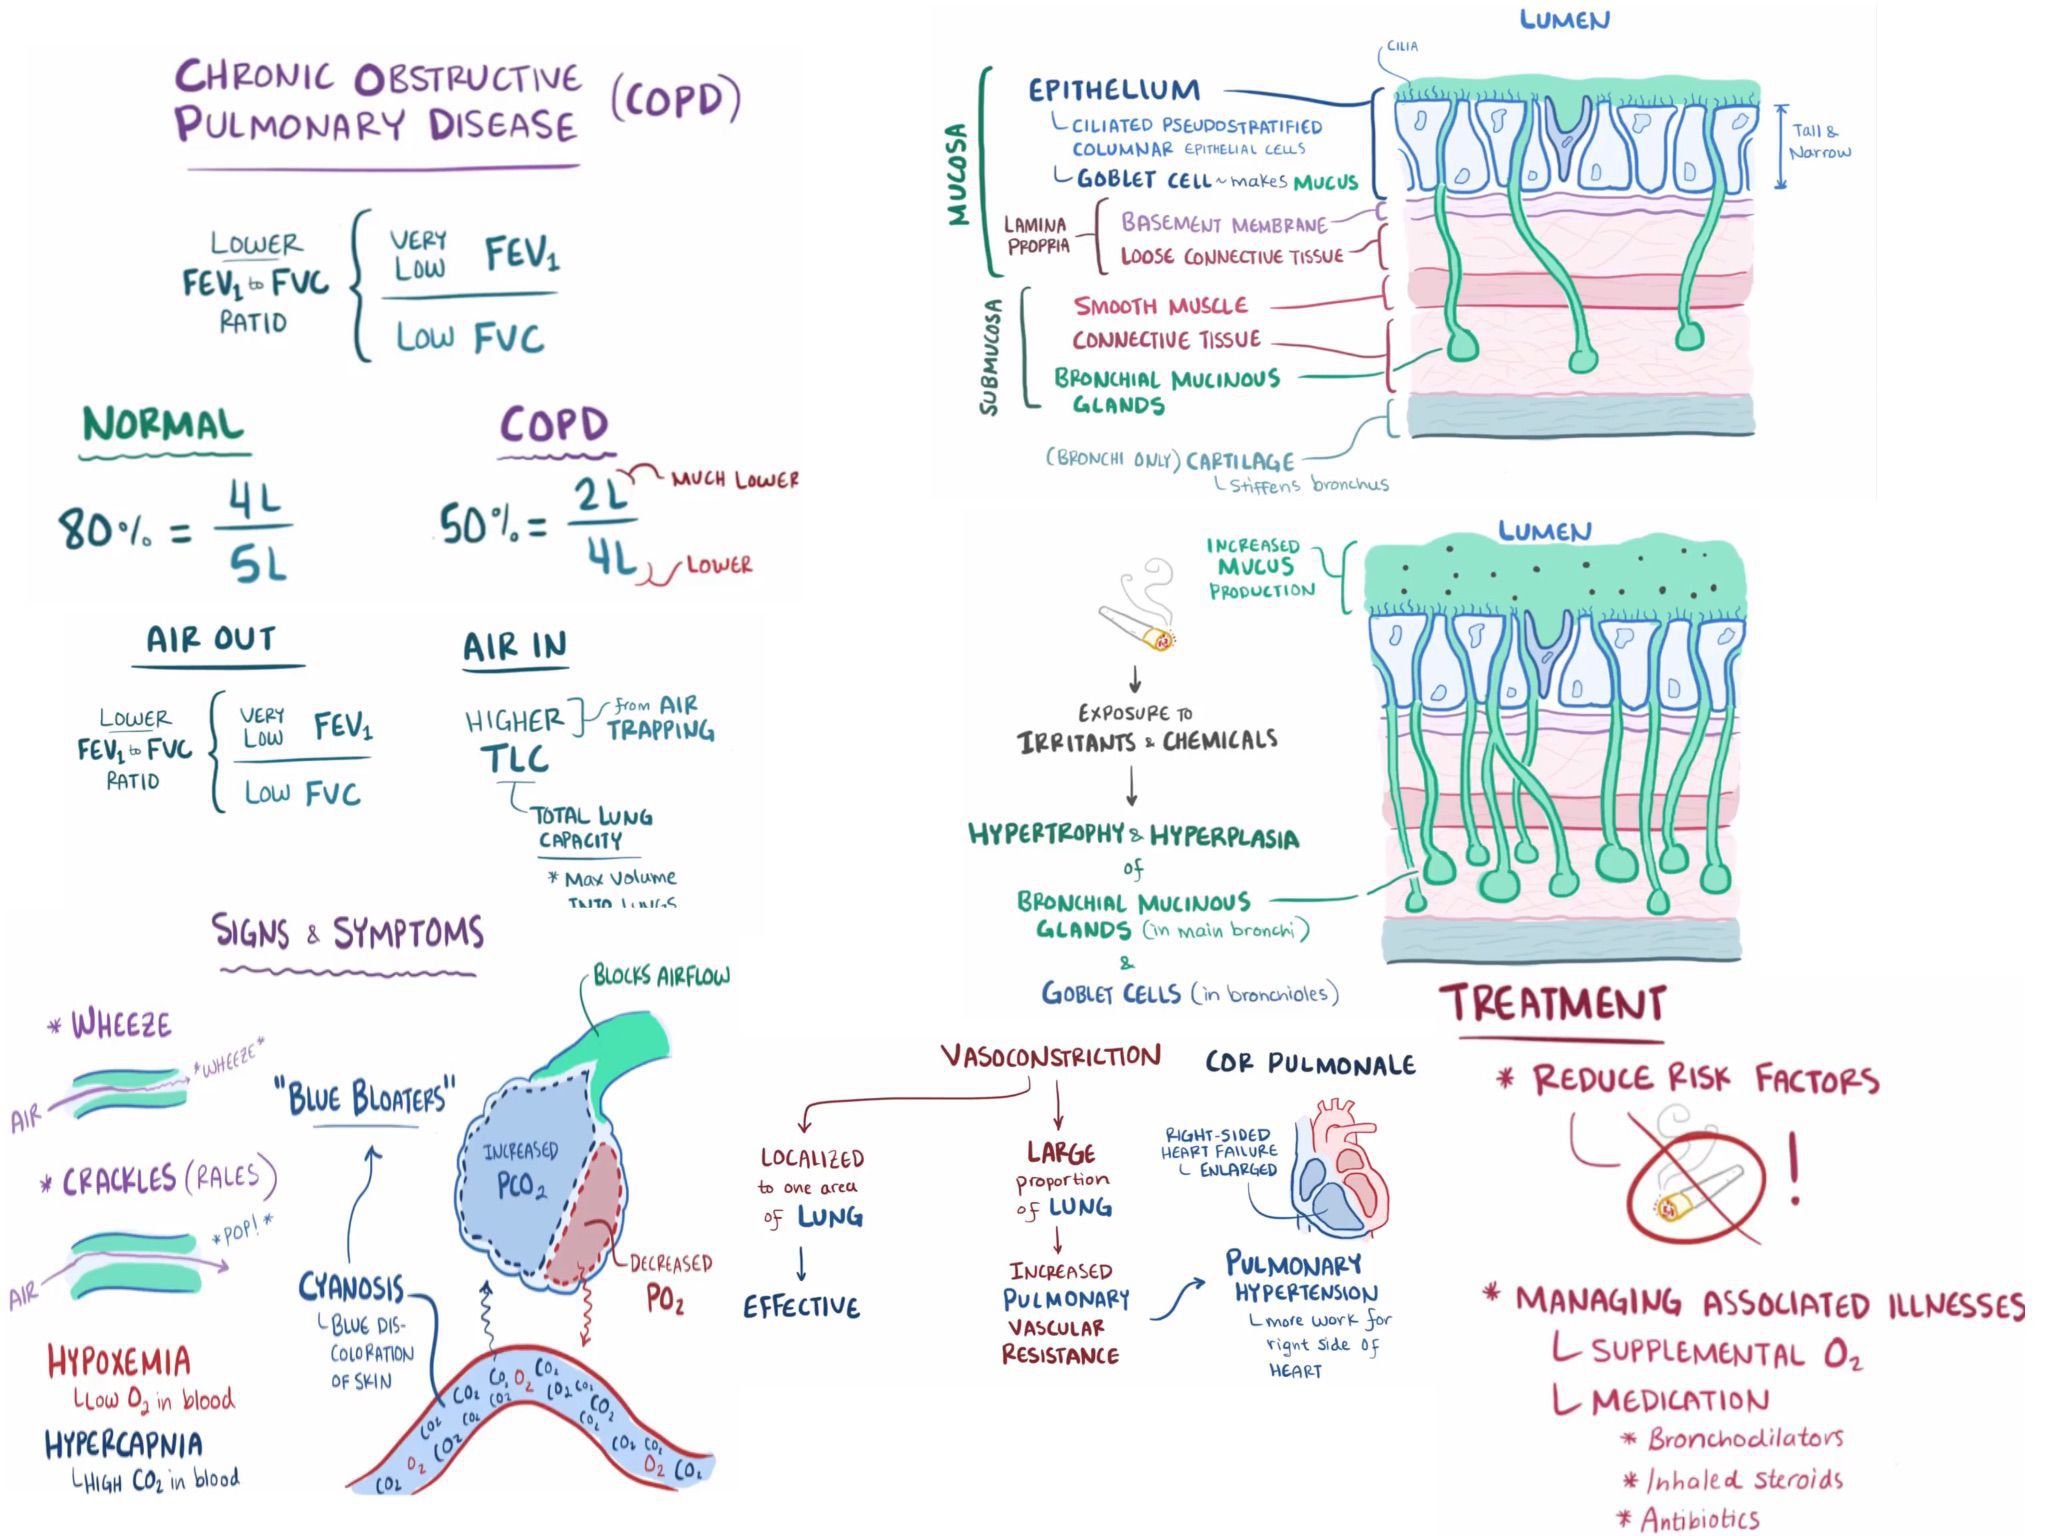 CHRONIC OBSTRUCTIVE
PULMONARY DISEASE
(COPD)
LOWER
FEV₁ to FVC
RATIO
VERY
LOW
FEV₁
LOW FVC
NORMAL
80% =
4L
5L
COPD
50% =
2L
4L
MUCH LOWER
LOWER
AIR OUT
LOWER
FEV₁ to FVC
RATIO
VERY
LOW
FEV₁
LOW FVC
AIR IN
HIGHER
TLC
from AIR
TRAPPING
TOTAL LUNG
CAPACITY
* MAX VOLUME
INTO LUNGS
SIGNS & SYMPTOMS
* WHEEZE
AIR
*WHEEZE*
* CRACKLES (RALES)
AIR
*POP!*
HYPOXEMIA
LOW O₂ in blood
HYPERCAPNIA
HIGH CO₂ in blood
"BLUE BLOATERS"
CYANOSIS
BLUE DIS-
COLORATION
OF SKIN
BLOCKS AIRFLOW
INCREASED
PCO₂
DECREASED
PO₂
CO₂
CO₂
O₂
CO₂
CO₂
CO₂
CO₂
CO₂
CO₂
CO₂
CO₂
O₂
CO₂
CO₂
CO₂
CO₂
CO₂
CO₂
CO₂
O₂
CO₂
LUMEN
CILIA
MUCOSA
EPITHELIUM
CILIATED PSEUDOSTRATIFIED
COLUMNAR EPITHELIAL CELLS
GOBLET CELL ~ makes MUCUS
Tall &
Narrow
LAMINA
PROPRIA
BASEMENT MEMBRANE
LOOSE CONNECTIVE TISSUE
SUBMUCOSA
SMOOTH MUSCLE
CONNECTIVE TISSUE
BRONCHIAL MUCINOUS
GLANDS
(BRONCHI ONLY) CARTILAGE
Stiffens bronchus
LUMEN
INCREASED
MUCUS
PRODUCTION
EXPOSURE TO
IRRITANTS & CHEMICALS
HYPERTROPHY & HYPERPLASIA
of
BRONCHIAL MUCINOUS
GLANDS (in main bronchi)
&
GOBLET CELLS (in bronchioles)
VASOCONSTRICTION
LOCALIZED
to one area
of LUNG
EFFECTIVE
LARGE
proportion
of LUNG
INCREASED
PULMONARY
VASCULAR
RESISTANCE
COR PULMONALE
RIGHT-SIDED
HEART FAILURE
ENLARGED
PULMONARY
HYPERTENSION
more work for
right side of
HEART
TREATMENT
* REDUCE RISK FACTORS
!
* MANAGING ASSOCIATED ILLNESSES
SUPPLEMENTAL O₂
MEDICATION
* Bronchodilators
* Inhaled steroids
* Antibiotics